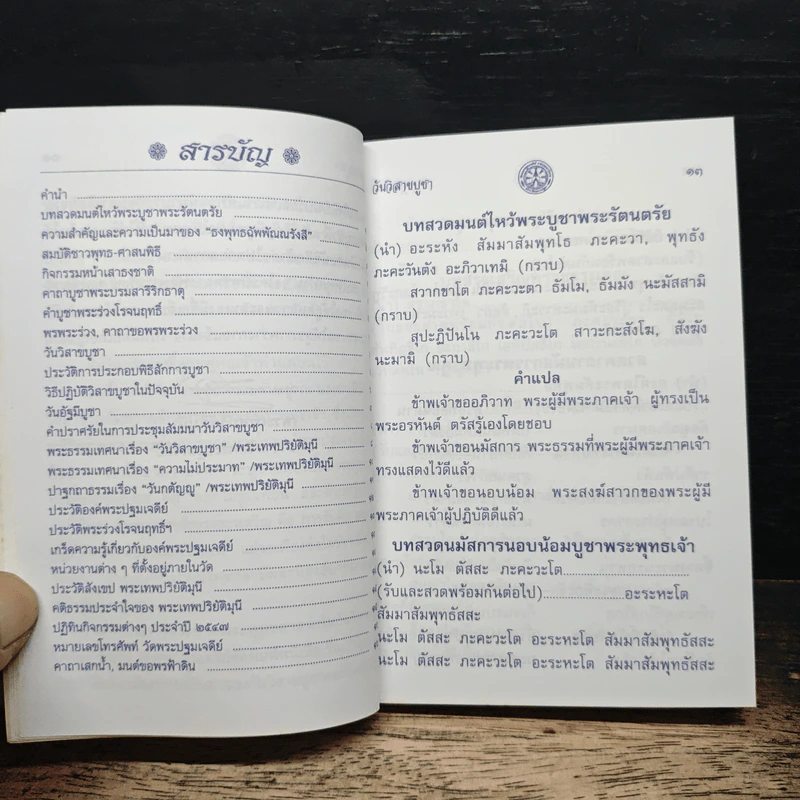 สารบัญ
คำนำ
บทสวดมนต์ไหว้พระบูชาพระรัตนตรัย
ความสำคัญและความเป็นมาของ "ธงพุทธฉัพพัณณรังสี"
สมบัติชาวพุทธ-ศาสนพิธี
กิจกรรมหน้าเสาธงชาติ
คาถาบูชาพระบรมสารีริกธาตุ
คำบูชาพระร่วงโรจนฤทธิ์
พรพระร่วง, คาถาขอพรพระร่วง
วันวิสาขบูชา
ประวัติการประกอบพิธีสักการบูชา
วิธีปฏิบัติวิสาขบูชาในปัจจุบัน
วันอัฐมีบูชา
คำปราศรัยในการประชุมสัมมนาวันวิสาขบูชา
พระธรรมเทศนาเรื่อง "วันวิสาขบูชา" /พระเทพปริยัติมุนี
พระธรรมเทศนาเรื่อง "ความไม่ประมาท" /พระเทพปริยัติมุนี
ปาฐกถาธรรมเรื่อง "วันกตัญญู" /พระเทพปริยัติมุนี
ประวัติองค์พระปฐมเจดีย์
ประวัติพระร่วงโรจนฤทธิ์ฯ
เกร็ดความรู้เกี่ยวกับองค์พระปฐมเจดีย์
หน่วยงานต่าง ๆ ที่ตั้งอยู่ภายในวัด
ประวัติสังเขป พระเทพปริยัติมุนี
คติธรรมประจำใจของ พระเทพปริยัติมุนี
ปฏิทินกิจกรรมต่างๆ ประจำปี ๒๕๔๗
หมายเลขโทรศัพท์ วัดพระปฐมเจดีย์
คาถาเสกน้ำ, มนต์ขอพรฟ้าดิน
วันวิสาขบูชา ๑๓
บทสวดมนต์ไหว้พระบูชาพระรัตนตรัย
(นำ) อะระหัง สัมมาสัมพุทโธ ภะคะวา, พุทธัง
ภะคะวันตัง อะภิวาเทมิ (กราบ)
สวากขาโต ภะคะวะตา ธัมโม, ธัมมัง นะมัสสามิ
(กราบ)
สุปะฏิปันโน ภะคะวะโต สาวะกะสังโฆ, สังฆัง
นะมามิ (กราบ)
คำแปล
ข้าพเจ้าขออภิวาท พระผู้มีพระภาคเจ้า ผู้ทรงเป็น
พระอรหันต์ ตรัสรู้เองโดยชอบ
ข้าพเจ้าขอนมัสการ พระธรรมที่พระผู้มีพระภาคเจ้า
ทรงแสดงไว้ดีแล้ว
ข้าพเจ้าขอนอบน้อม พระสงฆ์สาวกของพระผู้มี
พระภาคเจ้าผู้ปฏิบัติดีแล้ว
บทสวดนมัสการนอบน้อมบูชาพระพุทธเจ้า
(นำ) นะโม ตัสสะ ภะคะวะโต
(รับและสวดพร้อมกันต่อไป) อะระหะโต
สัมมาสัมพุทธัสสะ
นะโม ตัสสะ ภะคะวะโต อะระหะโต สัมมาสัมพุทธัสสะ
นะโม ตัสสะ ภะคะวะโต อะระหะโต สัมมาสัมพุทธัสสะ